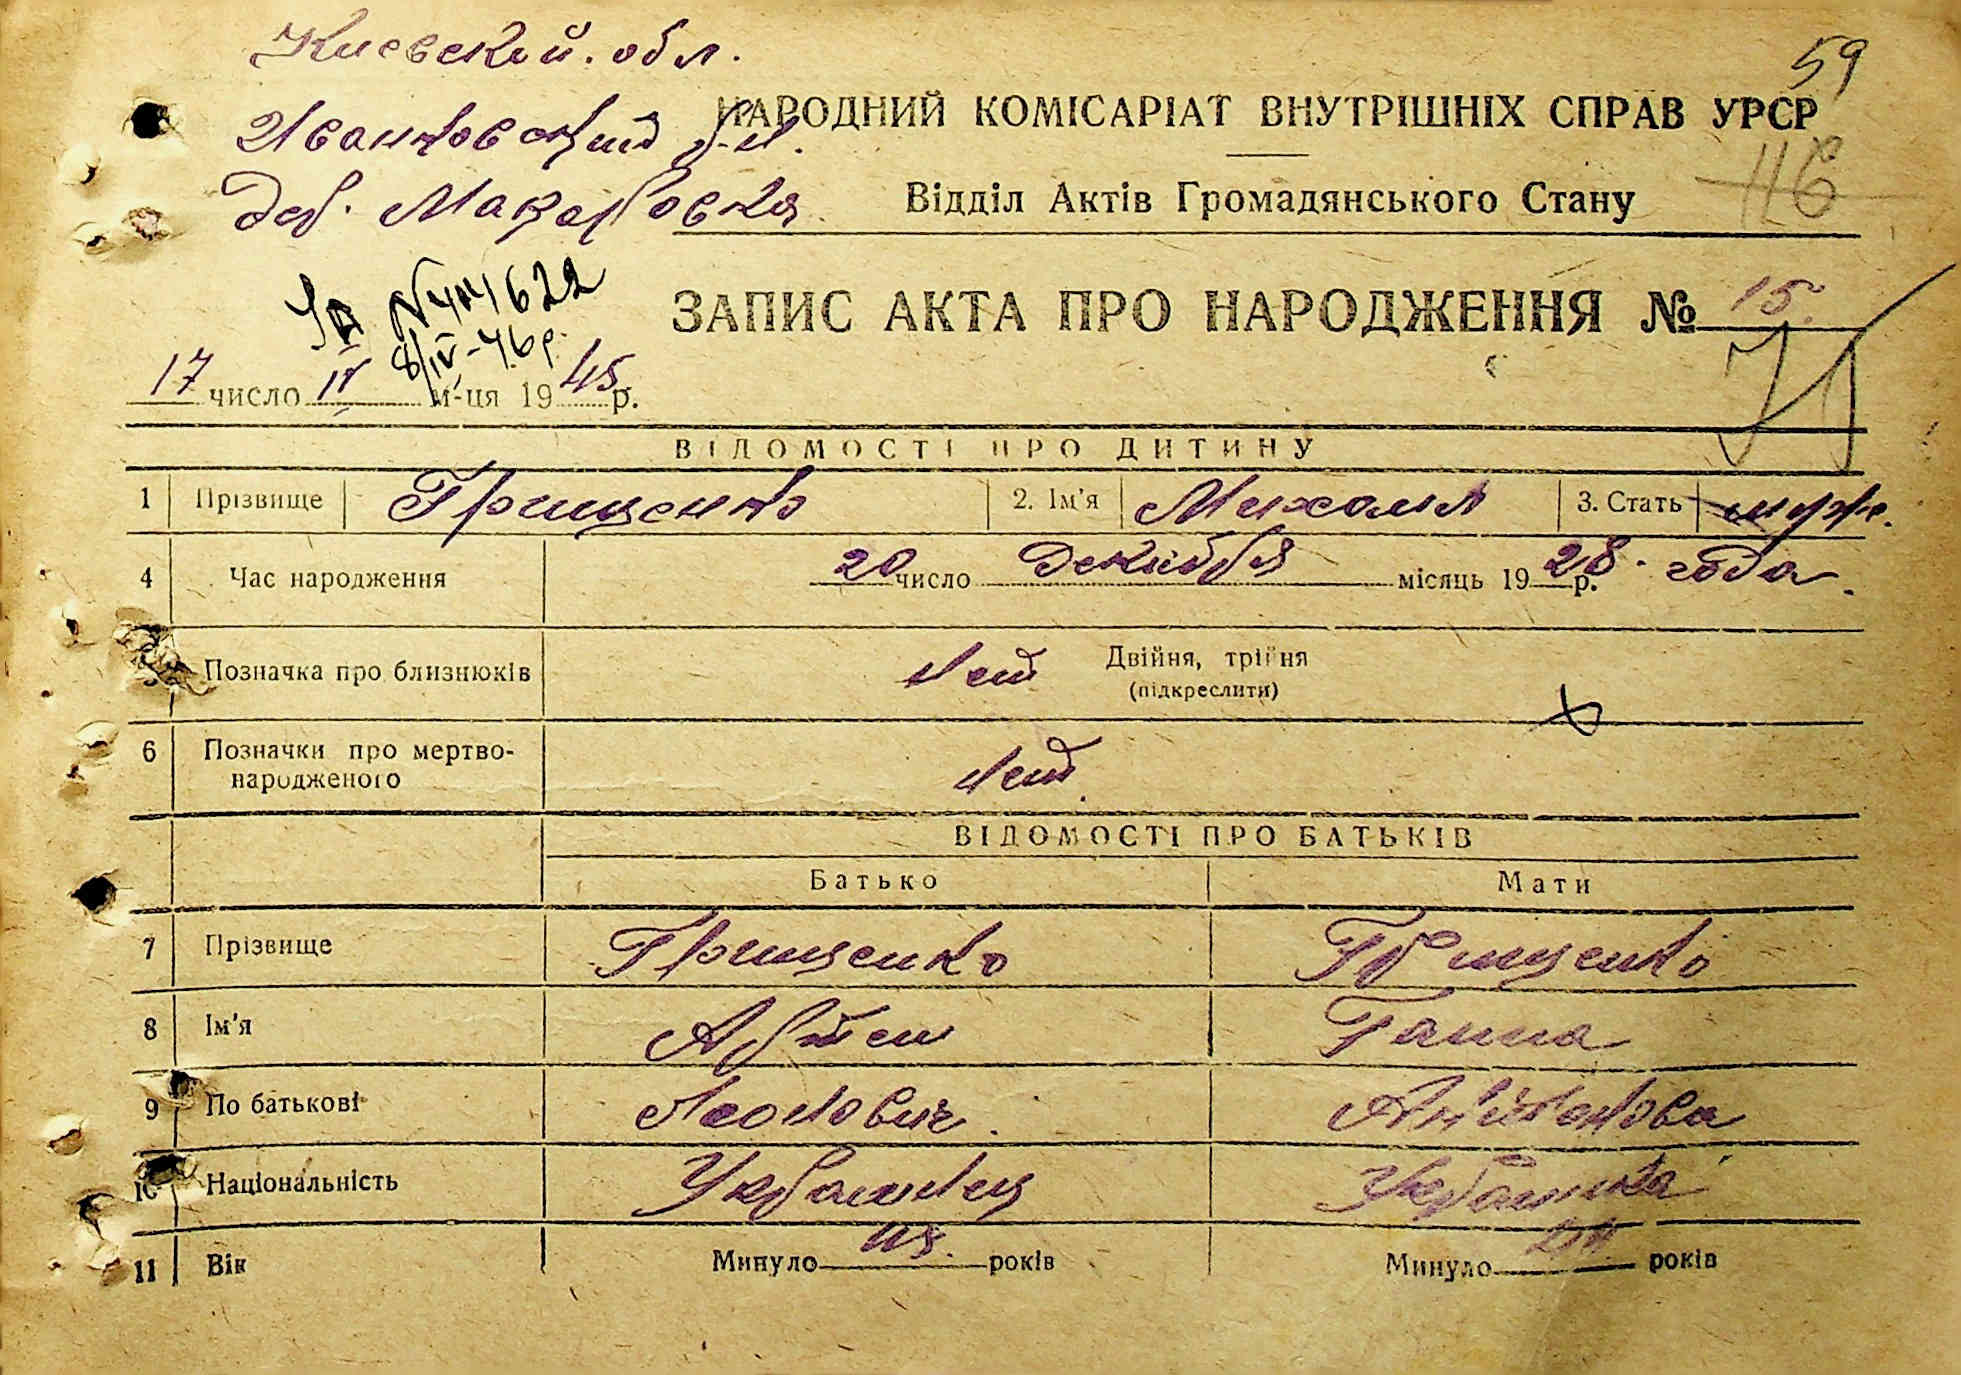 Киевской. обл.
59
Иванковский р-н.
НАРОДНИЙ КОМІСАРІАТ ВНУТРІШНІХ СПРАВ УРСР
116
дер. Макаровка
Відділ Актів Громадянського Стану
ЗАПИС АКТА ПРО НАРОДЖЕННЯ № 15.
8/IV-46р.
17 число IV м-ця 1945 р.
ВІДОМОСТІ ПРО ДИТИНУ
1 Прізвище Грищенко 2. Ім'я Михаил 3. Стать муж.
4 Час народження 20 число Декабря місяць 1928 р. года.
5 Позначка про близнюків Нет Двійня, трійня
(підкреслити)
6 Позначки про мертво-
народженого Нет.
ВІДОМОСТІ ПРО БАТЬКІВ
Батько Мати
7 Прізвище Грищенко Грищенко
8 Ім'я Артем Ганна
9 По батькові Леонович. Антоновна
10 Національність Украинец Украинка
11 Вік Минуло 45. років Минуло років